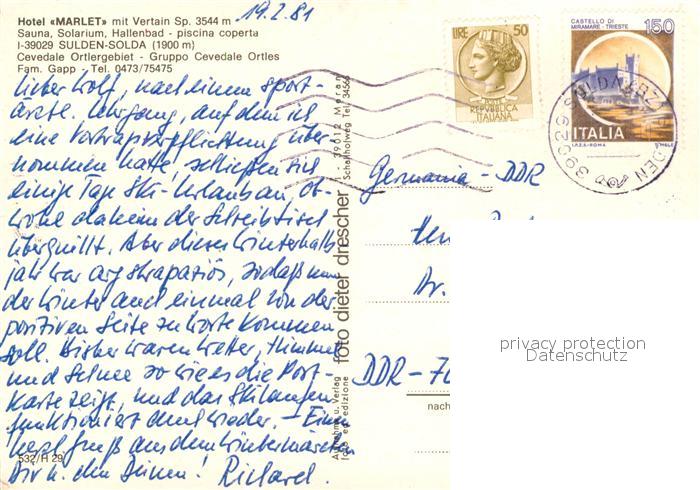 Hotel «MARLET» mit Vertain Sp. 3544 m
Sauna, Solarium, Hallenbad - piscina coperta
I-39029 SULDEN-SOLDA (1900 m)
Cevedale Ortlergebiet - Gruppo Cevedale Ortles
Fam. Gapp - Tel. 0473/75475
19.2.81
Lieber Wolf, nach einem Sport-
ärzte-Lehrgang, auf dem ich
eine Vortragsverpflichtung über-
nommen hatte, schließen sich
einige Tage Ski-Urlaub an, ob-
wohl daheim der Schreibtisch
überquillt. Aber dieses Winterhalb-
jahr war arg strapaziös, sodaß nun
der Winter auch einmal von der
positiven Seite zu Worte kommen
soll. Bisher waren Wetter, Himmel
und Schnee so wie es die Post-
karte zeigt, und das Skilaufen
funktioniert auch wieder. - Einen
herzl. Gruß aus dem Wintermärchen
Dir u. den Deinen! Richard.
532/H 29
Aufnahme u. Verlag
foto ed edizione
foto dieter drescher
I-39012 Meran
Schafholweg Tel. 34566
LIRE 50
REPUBBLICA
ITALIANA
CASTELLO DI
MIRAMARE - TRIESTE
150
ITALIA
I.P.Z.S.-ROMA
39029 SOLDA
Germania - DDR
Dr.
DDR - 70
nach
privacy protection
Datenschutz